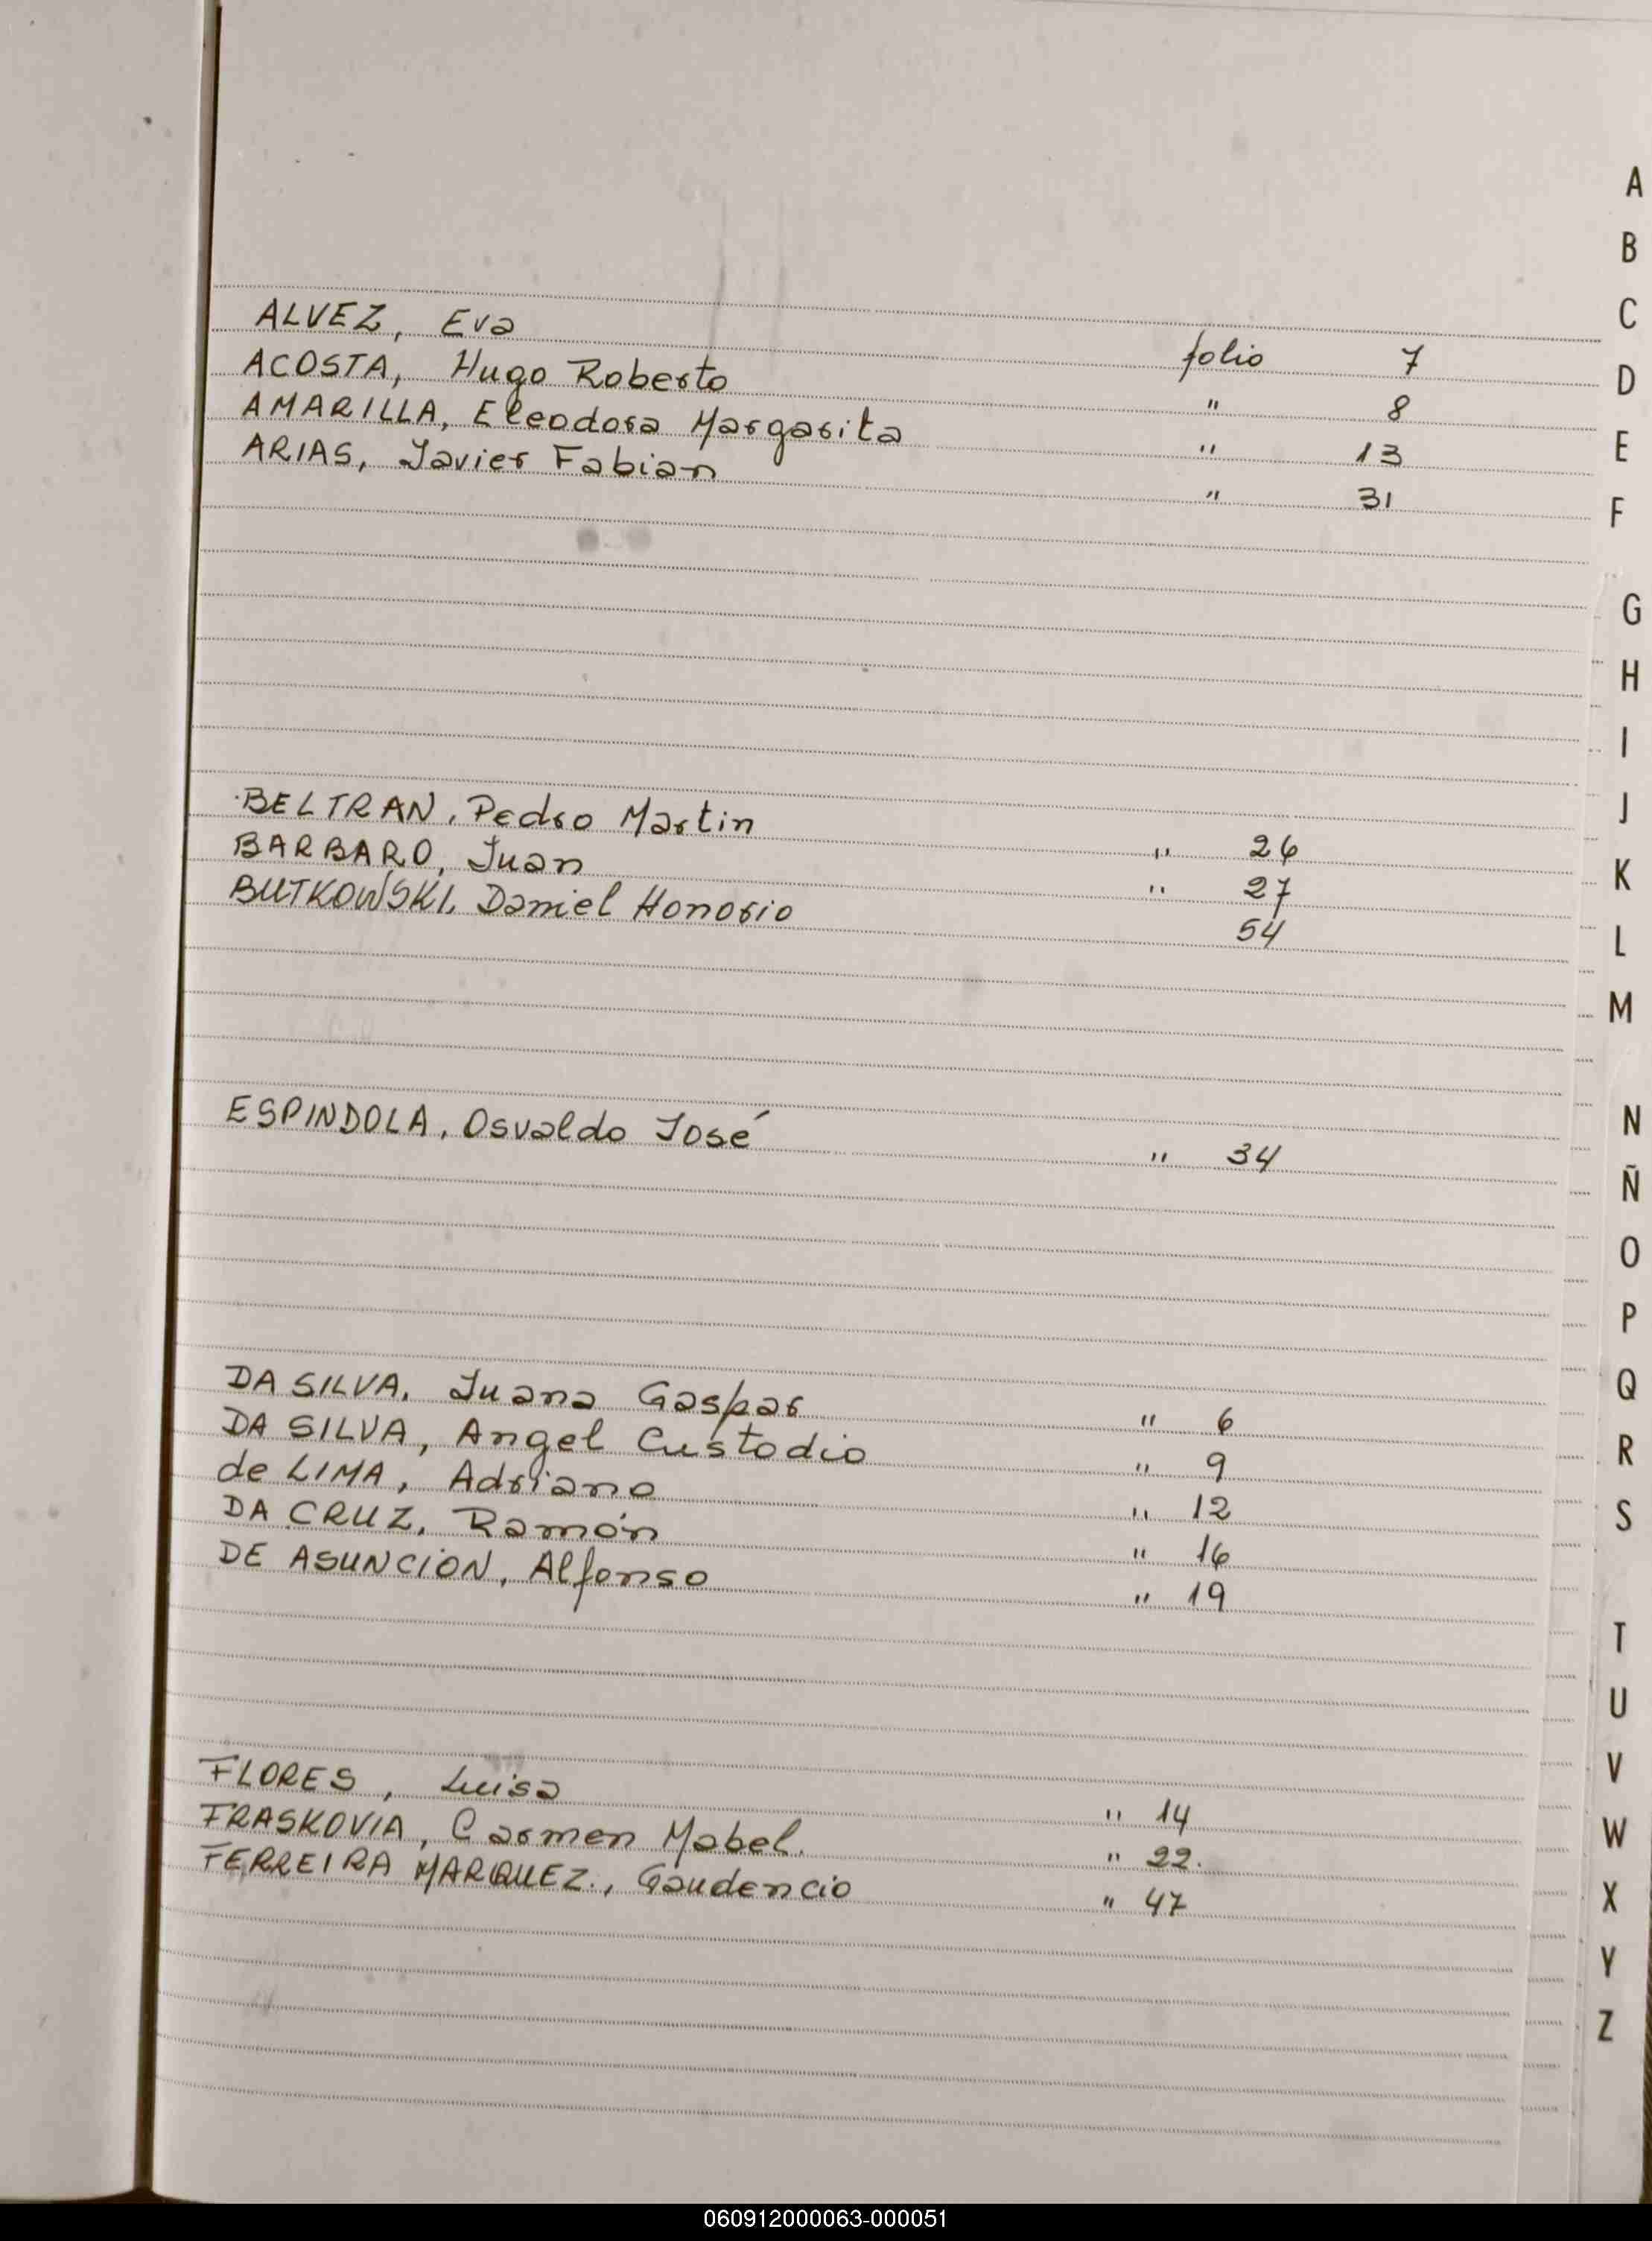 ALVEZ, Eva folio 7
ACOSTA, Hugo Roberto " 8
AMARILLA, Eleodora Margarita " 13
ARIAS, Javier Fabian " 31
BELTRAN, Pedro Martin " 26
BARBARO, Juan " 27
BUTKOWSKI, Daniel Honorio 54
ESPINDOLA, Osvaldo José " 34
DA SILVA, Juana Gaspar " 6
DA SILVA, Angel Custodio " 9
de LIMA, Adriano " 12
DA CRUZ, Ramón " 16
DE ASUNCION, Alfonso " 19
FLORES, Luisa " 14
FRASKOVIA, Carmen Mabel. " 22.
FERREIRA MARQUEZ., Gaudencio " 47
A
B
C
D
E
F
G
H
I
J
K
L
M
N
Ñ
O
P
Q
R
S
T
U
V
W
X
Y
Z
060912000063-000051